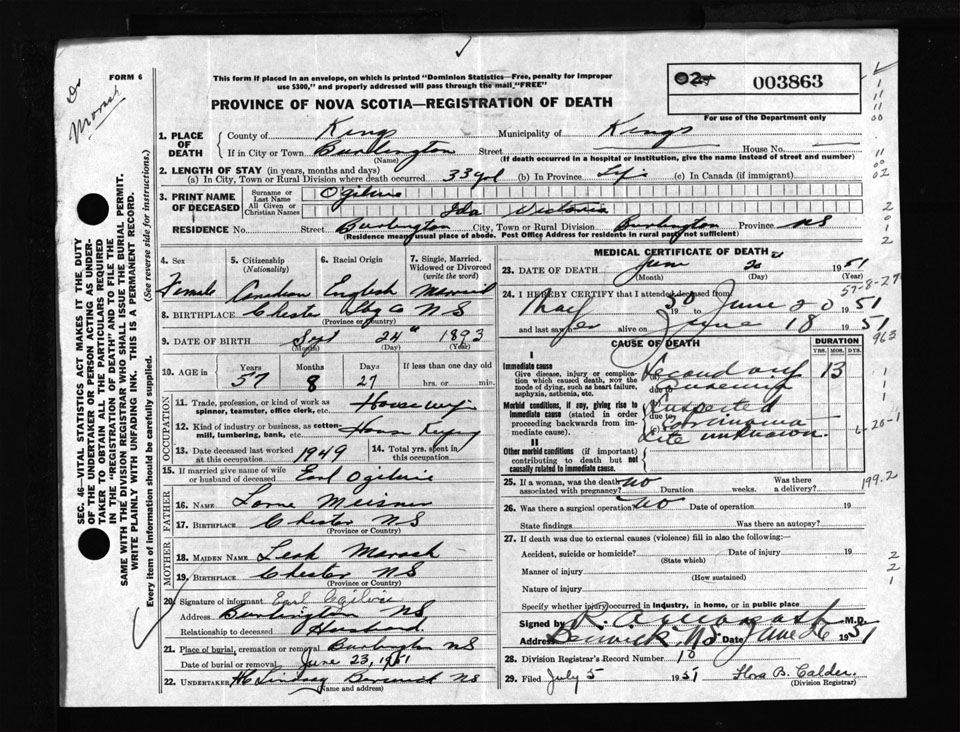 FORM 6
Dr Morash
This form if placed in an envelope, on which is printed "Dominion Statistics—Free, penalty for improper
use $300," and properly addressed will pass through the mail, "FREE"
PROVINCE OF NOVA SCOTIA—REGISTRATION OF DEATH
003863
For use of the Department only
SEC. 46—VITAL STATISTICS ACT MAKES IT THE DUTY
OF THE UNDERTAKER OR PERSON ACTING AS UNDER-
TAKER TO OBTAIN ALL THE PARTICULARS REQUIRED
IN THE "REGISTRATION OF DEATH" AND TO FILE THE
SAME WITH THE DIVISION REGISTRAR WHO SHALL ISSUE THE BURIAL PERMIT.
WRITE PLAINLY WITH UNFADING INK. THIS IS A PERMANENT RECORD.
Every item of information should be carefully supplied. (See reverse side for instructions.)
1. PLACE OF DEATH County of Kings Municipality of Kings
If in City or Town Burlington Street House No.
(Name) (If death occurred in a hospital or institution, give the name instead of street and number)
2. LENGTH OF STAY (in years, months and days)
(a) In City, Town or Rural Division where death occurred 33 yrs (b) In Province Life (c) In Canada (if immigrant)
3. PRINT NAME OF DECEASED Surname or Last Name Ogilvie
All Given or Christian Names Ida Victoria
RESIDENCE No. Street Burlington City, Town or Rural Division Burlington Province NS
(Residence means usual place of abode. Post Office Address for residents in rural parts not sufficient)
4. Sex 5. Citizenship (Nationality) 6. Racial Origin 7. Single, Married, Widowed or Divorced (write the word)
Female Canadian English Married
8. BIRTHPLACE Chester NS
(Province or Country)
9. DATE OF BIRTH Sept 24" 1893
(Month) (Day) (Year)
10. AGE Years Months Days If less than one day old
57 8 27 hrs. or min.
OCCUPATION
11. Trade, profession, or kind of work as
spinner, teamster, office clerk, etc. Housewife
12. Kind of industry or business, as cotton-
mill, lumbering, bank, etc. House Keeping
13. Date deceased last worked at this occupation 1949 14. Total yrs. spent in this occupation
15. If married give name of wife
or husband of deceased Earl Ogilvie
FATHER
16. NAME Lorne Meisner
17. BIRTHPLACE Chester NS
(Province or Country)
MOTHER
18. MAIDEN NAME Leah Marash
19. BIRTHPLACE Chester NS
(Province or Country)
20. Signature of informant Earl Ogilvie
Address Burlington NS
Relationship to deceased Husband
21. Place of burial, cremation or removal Burlington NS
Date of burial or removal June 23, 1951
22. UNDERTAKER H C Lindsay Berwick NS
(Name and address)
MEDICAL CERTIFICATE OF DEATH
23. DATE OF DEATH June 20 1951
(Month) (Day) (Year)
57-8-27
24. I HEREBY CERTIFY that I attended deceased from
May 30 19 to June 20 1951
and last saw her alive on June 18 1951
CAUSE OF DEATH DURATION
YRS. MOS. DYS.
I
Immediate cause
Give disease, injury or complica-
tion which caused death, NOT the
mode of dying, such as heart failure,
asphyxia, asthenia, etc.
(a) Secondary 13
due to
Morbid conditions, if any, giving rise to
immediate cause (stated in order
proceeding backwards from im-
mediate cause).
Suspected
due to
Carcinoma
Site unknown.
II
Other morbid conditions (if important)
contributing to death but not
causally related to immediate cause.
25. If a woman, was the death
associated with pregnancy? no Duration weeks. Was there a delivery?
199.2
26. Was there a surgical operation? no Date of operation 19
State findings Was there an autopsy?
27. If death was due to external causes (violence) fill in also the following:—
Accident, suicide or homicide? Date of injury 19
(State which)
Manner of injury
(How sustained)
Nature of injury
Specify whether injury occurred in industry, in home, or in public place
Signed by M.D.
Address Berwick, NS Date June 26 1951
28. Division Registrar's Record Number 10
29. Filed July 5 1951 Flora B. Calder.
(Division Registrar)